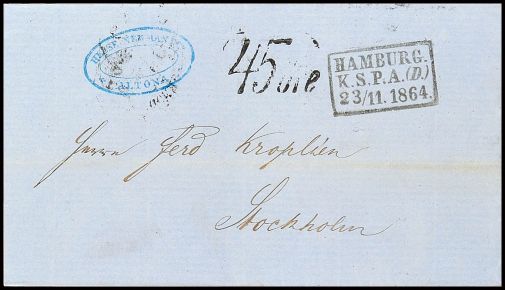 ALTONA
45 öre
HAMBURG.
K.S.P.A.(D.)
23/11.1864.
Herrn Ferd Kroplien
Stockholm